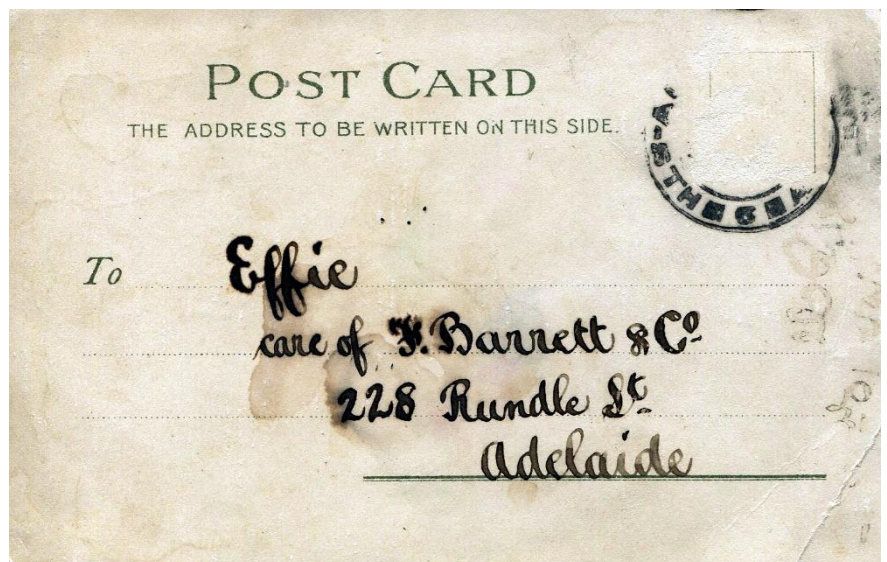 POST CARD
THE ADDRESS TO BE WRITTEN ON THIS SIDE.
To Effie
care of F. Barrett & Co
228 Rundle St
Adelaide